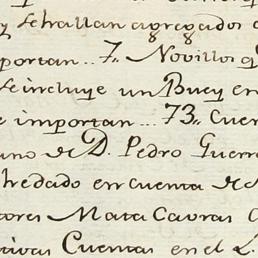 y se hallan agregados
portan... 7,, Novillos q
se incluye un Buey en
e importan... 73,, Cuer
ano de D. Pedro Guerr
hredado en cuenta de
tores Mata Cavras
tivas Cuentas en el L.